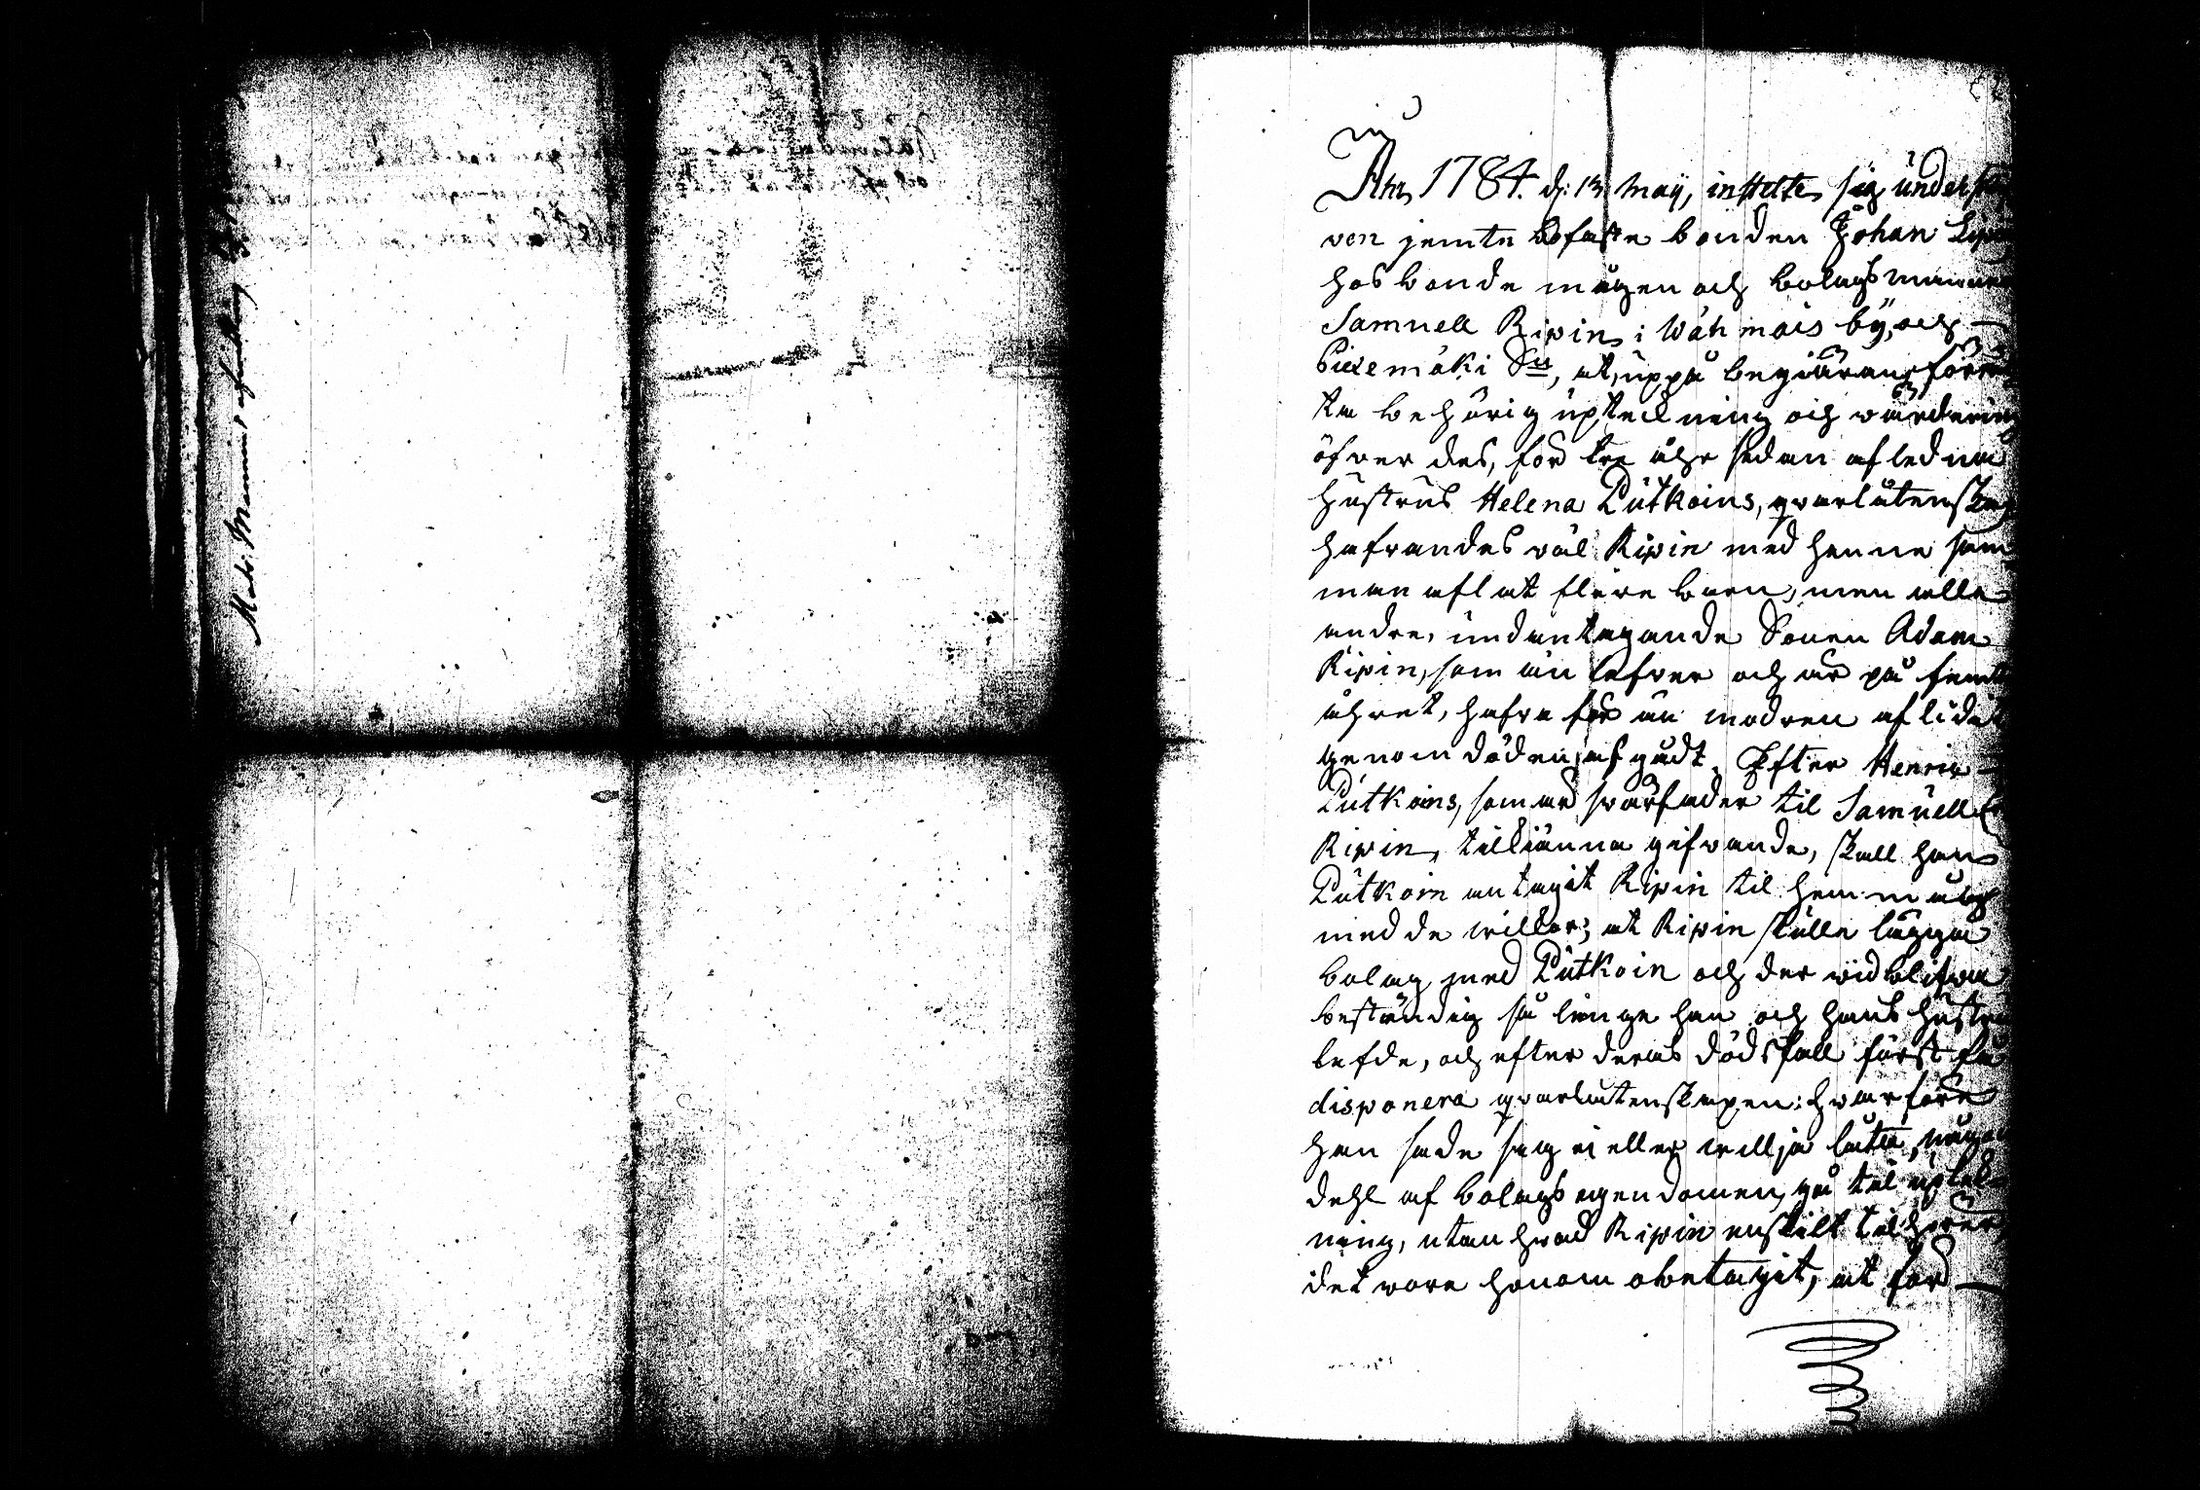 Åhr 1784. d: 13 Maÿ, instelte sig underskre
ven jemte bofaste bonden Johan
hos bonde mågen och bolagsmannen
Samuell Ripin i Wähmais bÿ, och
Piexemäki Sn, at, uppå begiäran, förrät
ta behörig uptedkning och wärdering
öfver des, för tre åhr sedan afledna
hustrus Helena Putkoins, qvarlåtenskap,
hafvandes väl Ripin med henne sam
man aflat flere barn, men alla
andre, undantagande Sonen Adam
Ripin, som än lefver och är på femte
åhret, hafva för än modren aflidit
genom döden afgådt. Efter Henric
Putkoins, som är svärfader til Samuell
Ripin, tillkiänna gifvande, skall han
Putkoin antagit Ripin til hemmåg
med de willkor, at Ripin skulle lägga
bolag med Putkoin och der widblifva
beständig så länge han och hans hustru
lefde, och efter deras dödsfall först få
disponera qvarlåtenskapen; hvarföre
han sade sig ei eller willja låta, någon
dehl af bolags egendomen, gå til uptek
ning, utan hvad Ripin enskilt tilhörer,
det vore honom obetagit, at för